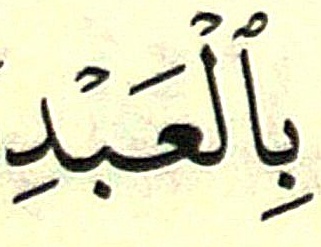 بِٱلْعَبْدِ